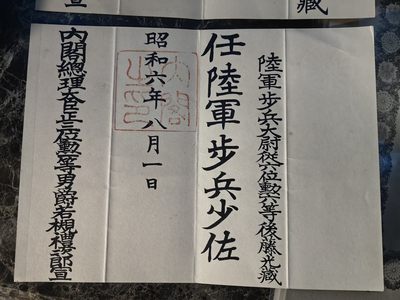 陸軍步兵大尉從六位勲六等後藤光藏
任陸軍步兵少佐
昭和六年八月一日
内閣之印
内閣總理大臣正二位勲一等男爵若槻禮次郎宣
藏
宣